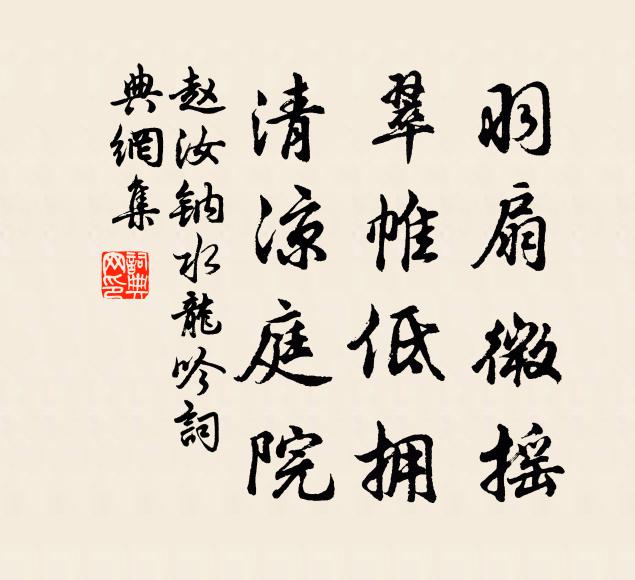 羽扇微摇
翠帷低拥
清凉庭院
赵汝钠水龍吟詞
典網集
詞典网印